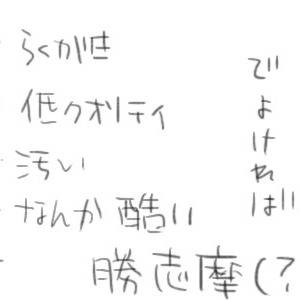 らくがき
低クオリティ
汚い
なんか酷い
でよければ
勝志摩(?